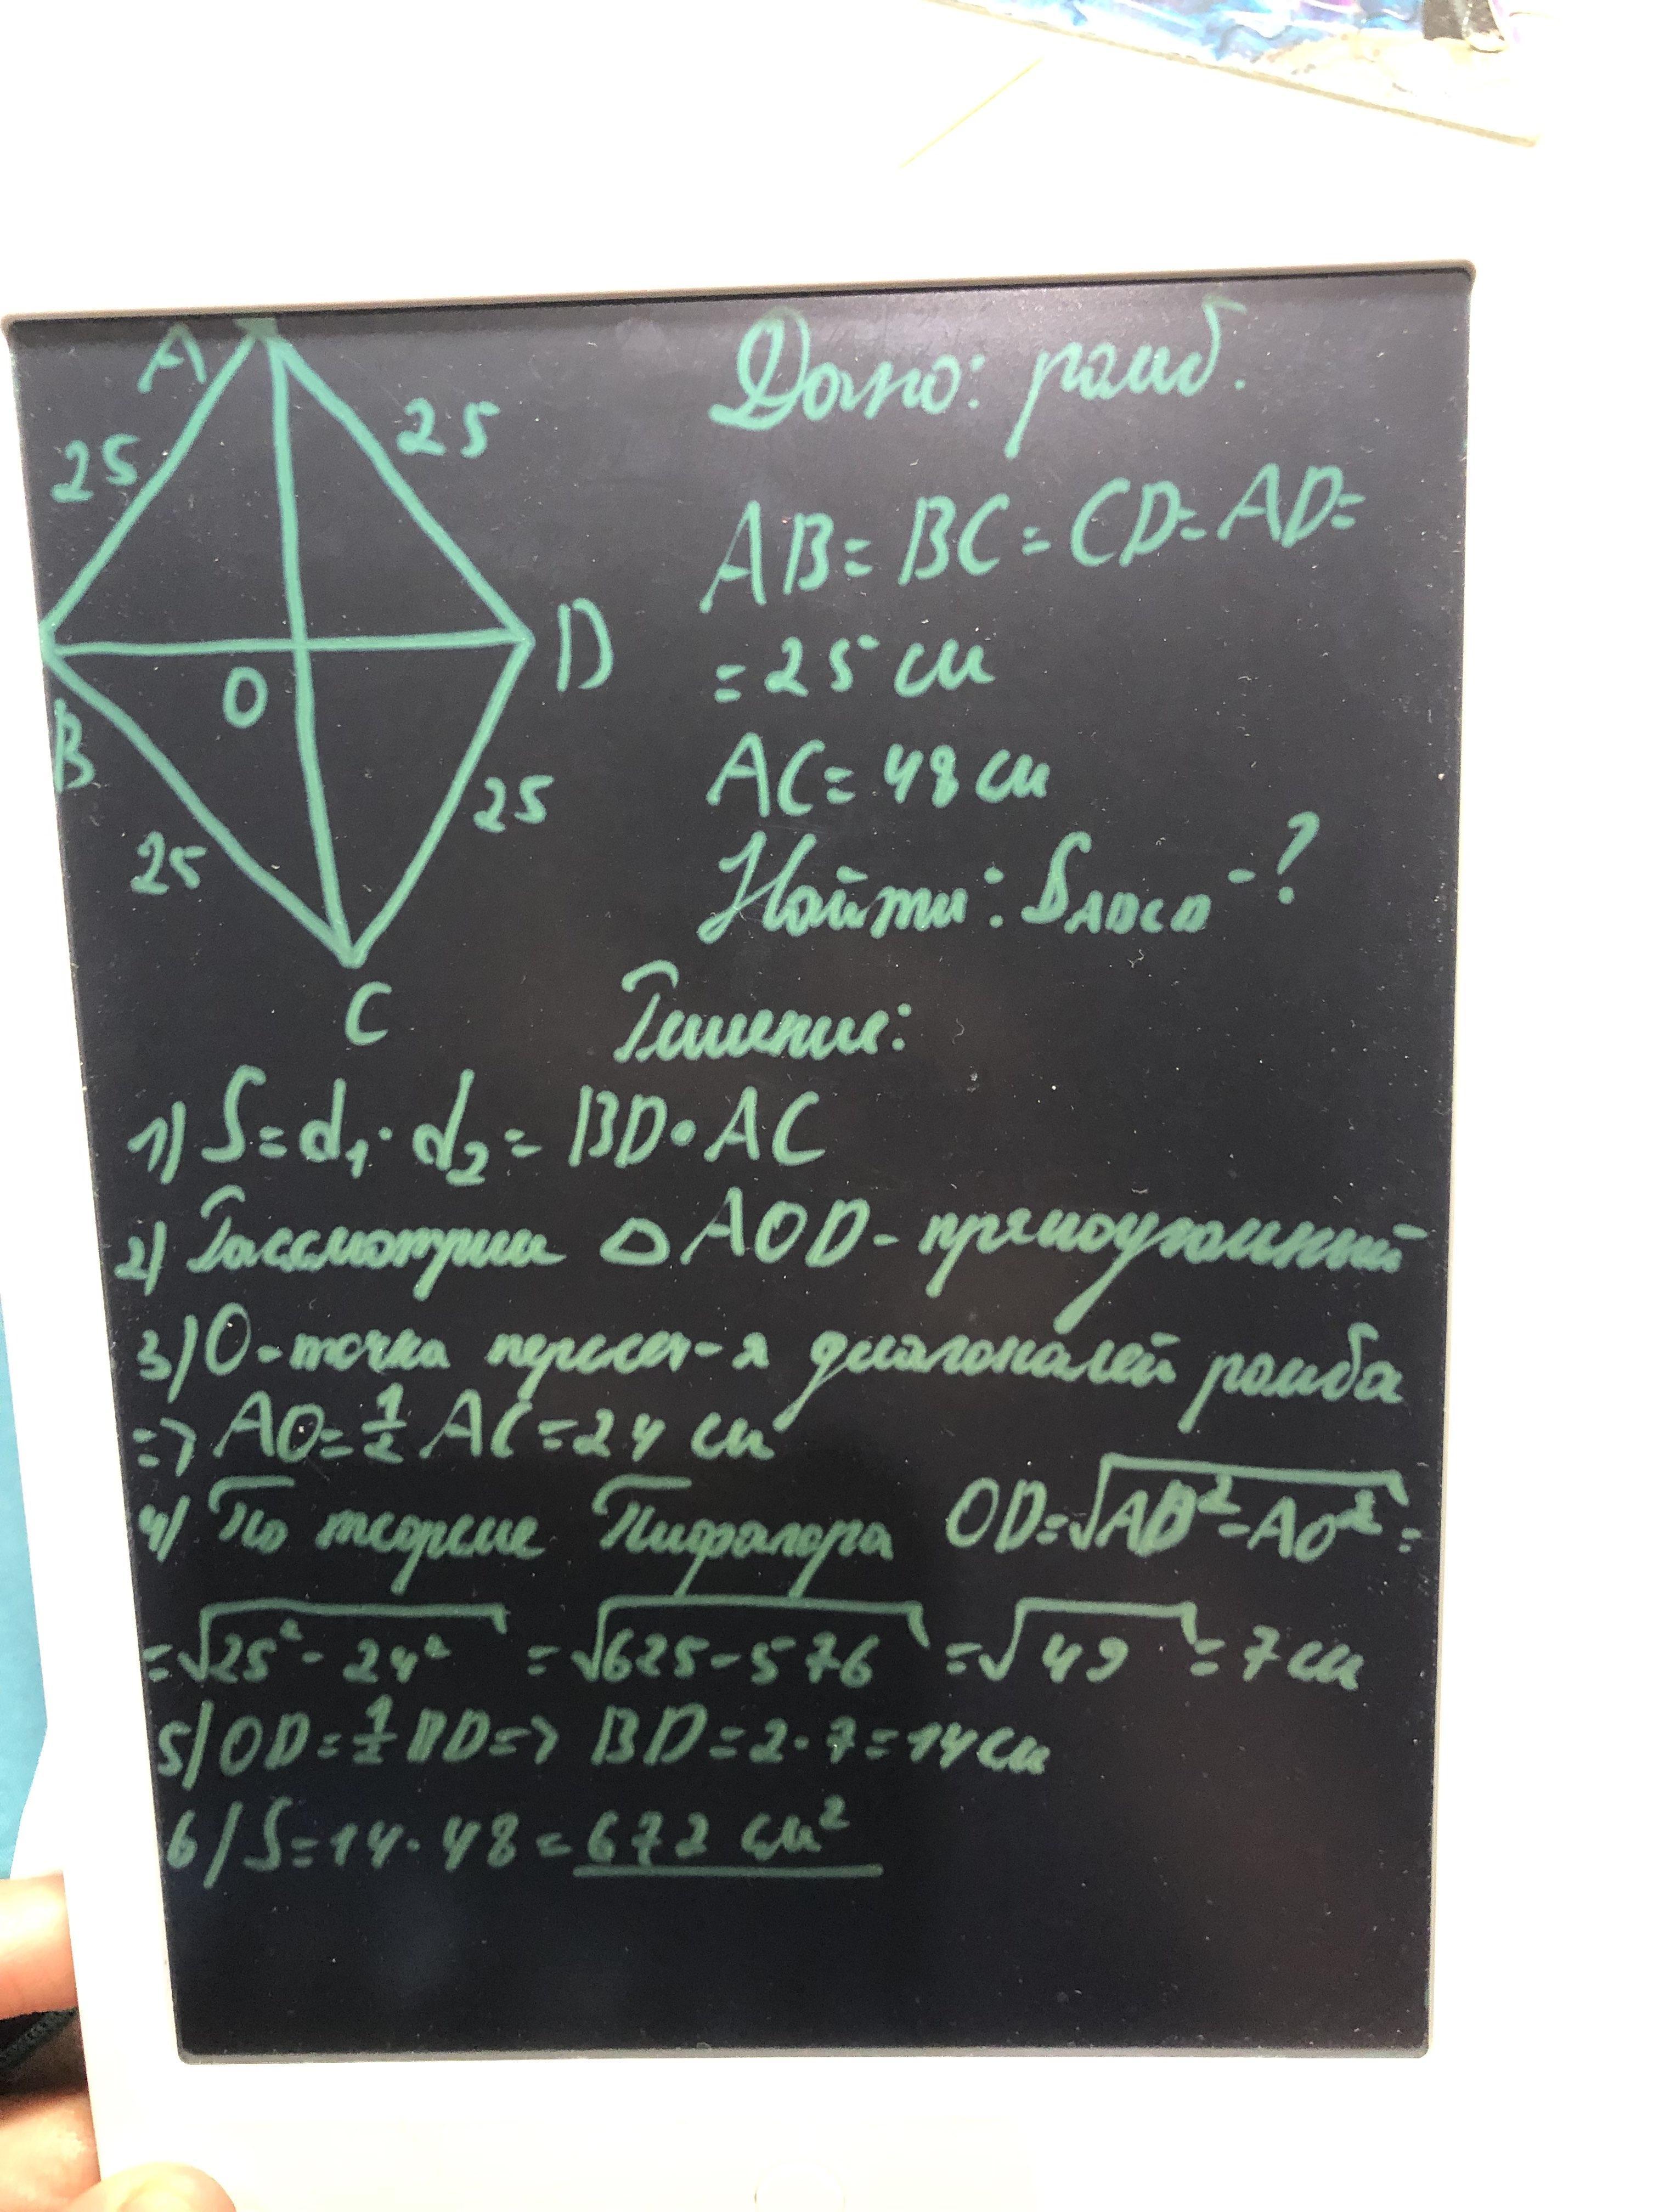 A
25
25
O
D
B
25
25
C
Дано: ромб.
AB = BC = CD = AD =
= 25 см
AC = 48 см
Найти: S_ABCD - ?
Решение:
1) S = d₁ · d₂ = BD · AC
2) Рассмотрим △ AOD - прямоугольный
3) O - точка пересеч-я диагоналей ромба
=> AO = 1/2 AC = 24 см
4) По теореме Пифагора OD = √(AD² - AO²) =
= √(25² - 24²) = √(625 - 576) = √49 = 7 см
5) OD = 1/2 BD => BD = 2 · 7 = 14 см
6) S = 14 · 48 = 672 см²